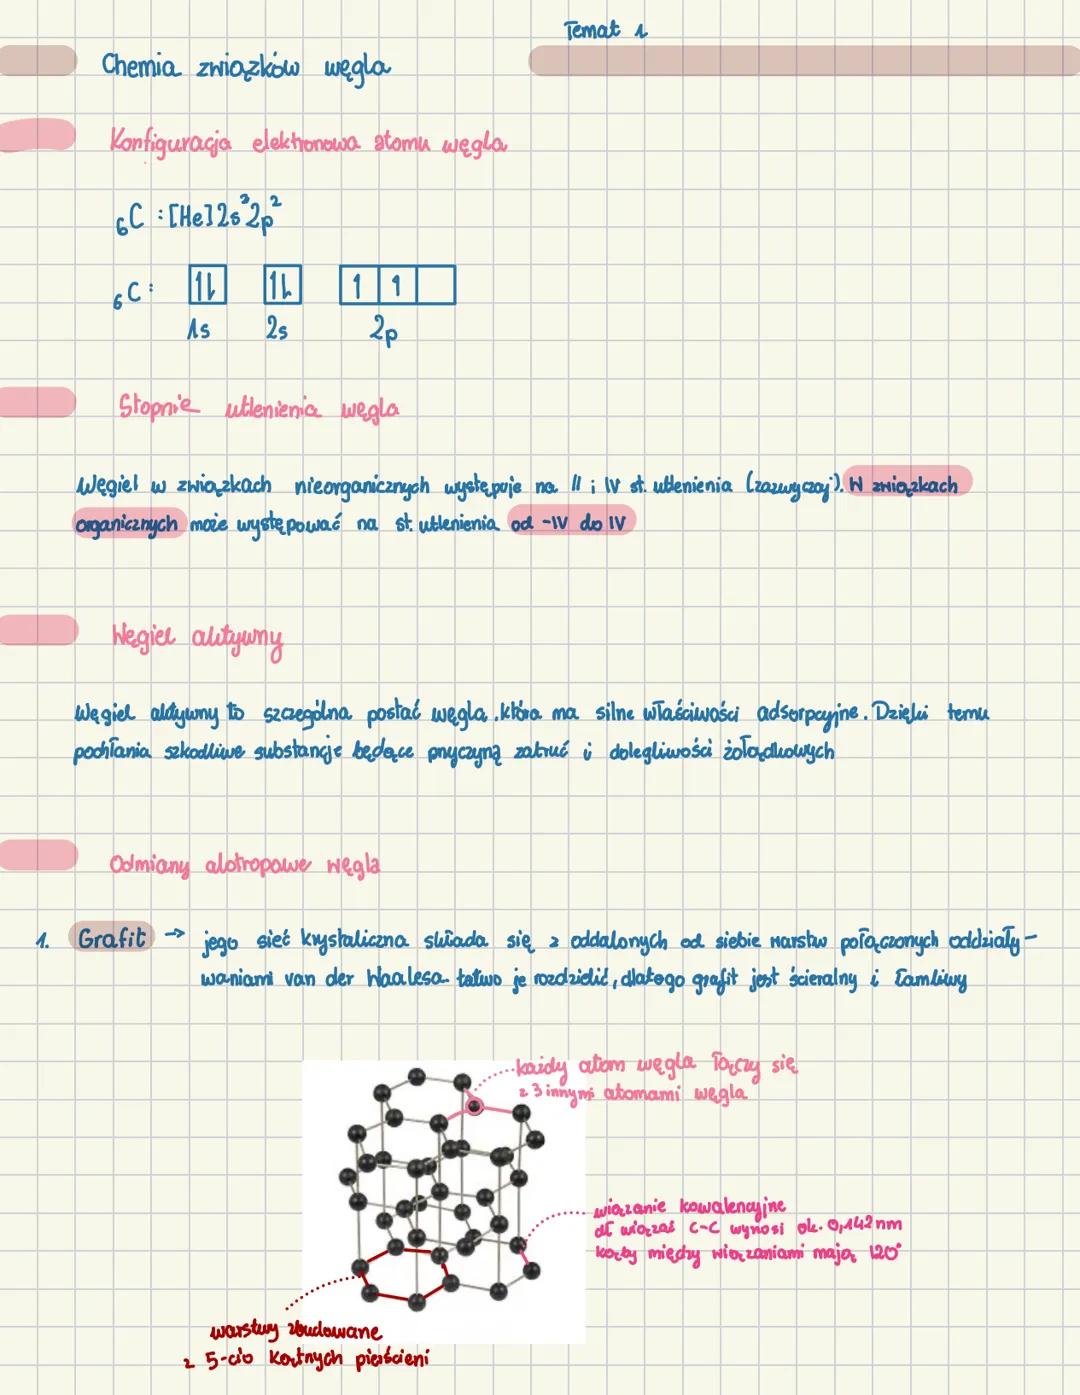 Temat 1
Chemia związków węgla
Konfiguracja elektronowa atomu węgla
₆C : [He] 2s³2p²
₆C: 1↿⇂ 1↿⇂ 1 1
1s 2s 2p
Stopnie utlenienia węgla
Węgiel w związkach nieorganicznych występuje na II i IV st. utlenienia (zazwyczaj). W związkach
organicznych może występować na st. utlenienia od -IV do IV
Węgiel aktywny
Węgiel aktywny to szczególna postać węgla, która ma silne właściwości adsorpcyjne. Dzięki temu
pochłania szkodliwe substancje będące przyczyną zatruć i dolegliwości żołądkowych
Odmiany alotropowe węgla
1. Grafit → jego sieć krystaliczna składa się z oddalonych od siebie warstw połączonych oddziały-
waniami van der Waalesa. łatwo je rozdzielić, dlatego grafit jest ścieralny i łamliwy
każdy atom węgla łączy się
z 3 innymi atomami węgla
wiązanie kowalencyjne
dł wiązań C-C wynosi ok. 0,142 nm
kąty między wiązaniami mają 120°
warstwy zbudowane
z 5-cio kątnych pierścieni